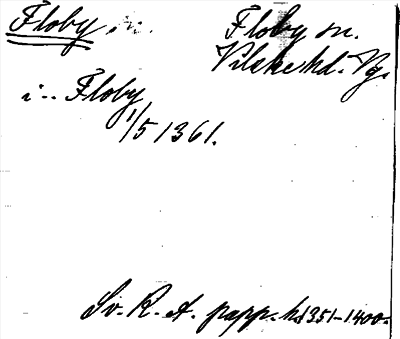 Floby sn. Floby sn.
Vilske hd. Vg.
i Floby
1/5 1361.
Sv. R. A. papp. h. 1351-1400.